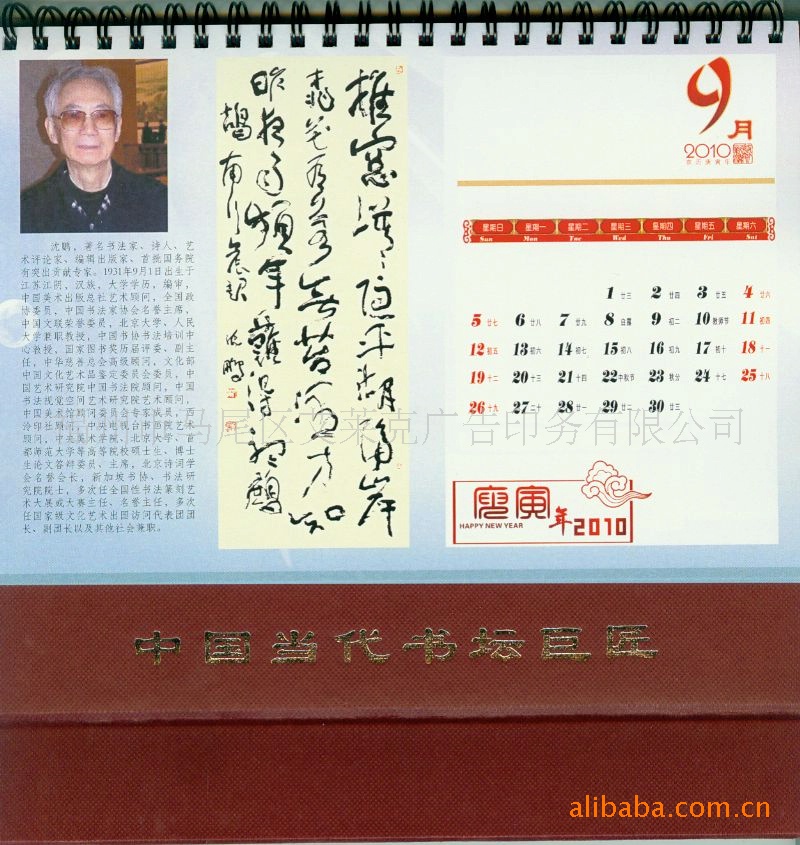 沈鹏，著名书法家、诗人、艺
术评论家、编辑出版家、首批国务院
有突出贡献专家。1931年9月1日出生于
江苏江阴，汉族，大学学历，编审，
中国美术出版总社艺术顾问，全国政
协委员，中国书法家协会名誉主席，
中国文联荣誉委员，北京大学、人民
大学兼职教授，中国书协书法培训中
心教授，国家图书奖历届评委、副主
任，中华慈善总会高级顾问，文化部
中国文化艺术品鉴定委员会委员，中
国艺术研究院中国书法院顾问，中国
书法视觉空间艺术研究院艺术顾问，
中国美术馆顾问委员会专家成员，西
泠印社顾问，中央电视台书画院艺术
顾问，中央美术学院、北京大学、首
都师范大学等高等院校硕士生、博士
生论文答辩委员、主席，北京诗词学
会名誉会长，新加坡书协、书法研究
院院士，多次任全国性书法篆刻艺
术大展或大赛主任、名誉主任，多次
任国家级文化艺术出国访问代表团团
长、副团长以及其他社会兼职。
沈鹏
9月
2010
农历庚寅年
星期日 星期一 星期二 星期三 星期四 星期五 星期六
Sun Mon Tue Wed Thu Fri Sat
1 廿三 2 廿四 3 廿五 4 廿六
5 廿七 6 廿八 7 廿九 8 白露 9 初二 10 教师节 11 初四
12 初五 13 初六 14 初七 15 初八 16 初九 17 初十 18 十一
19 十二 20 十三 21 十四 22 中秋节 23 秋分 24 十七 25 十八
26 十九 27 二十 28 廿一 29 廿二 30 廿三
马尾区艾莱克广告印务有限公司
庚寅年2010
HAPPY NEW YEAR
中国当代书坛巨匠
alibaba.com.cn